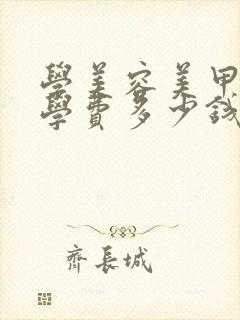 學美容美甲
學費多少錢
齊長城